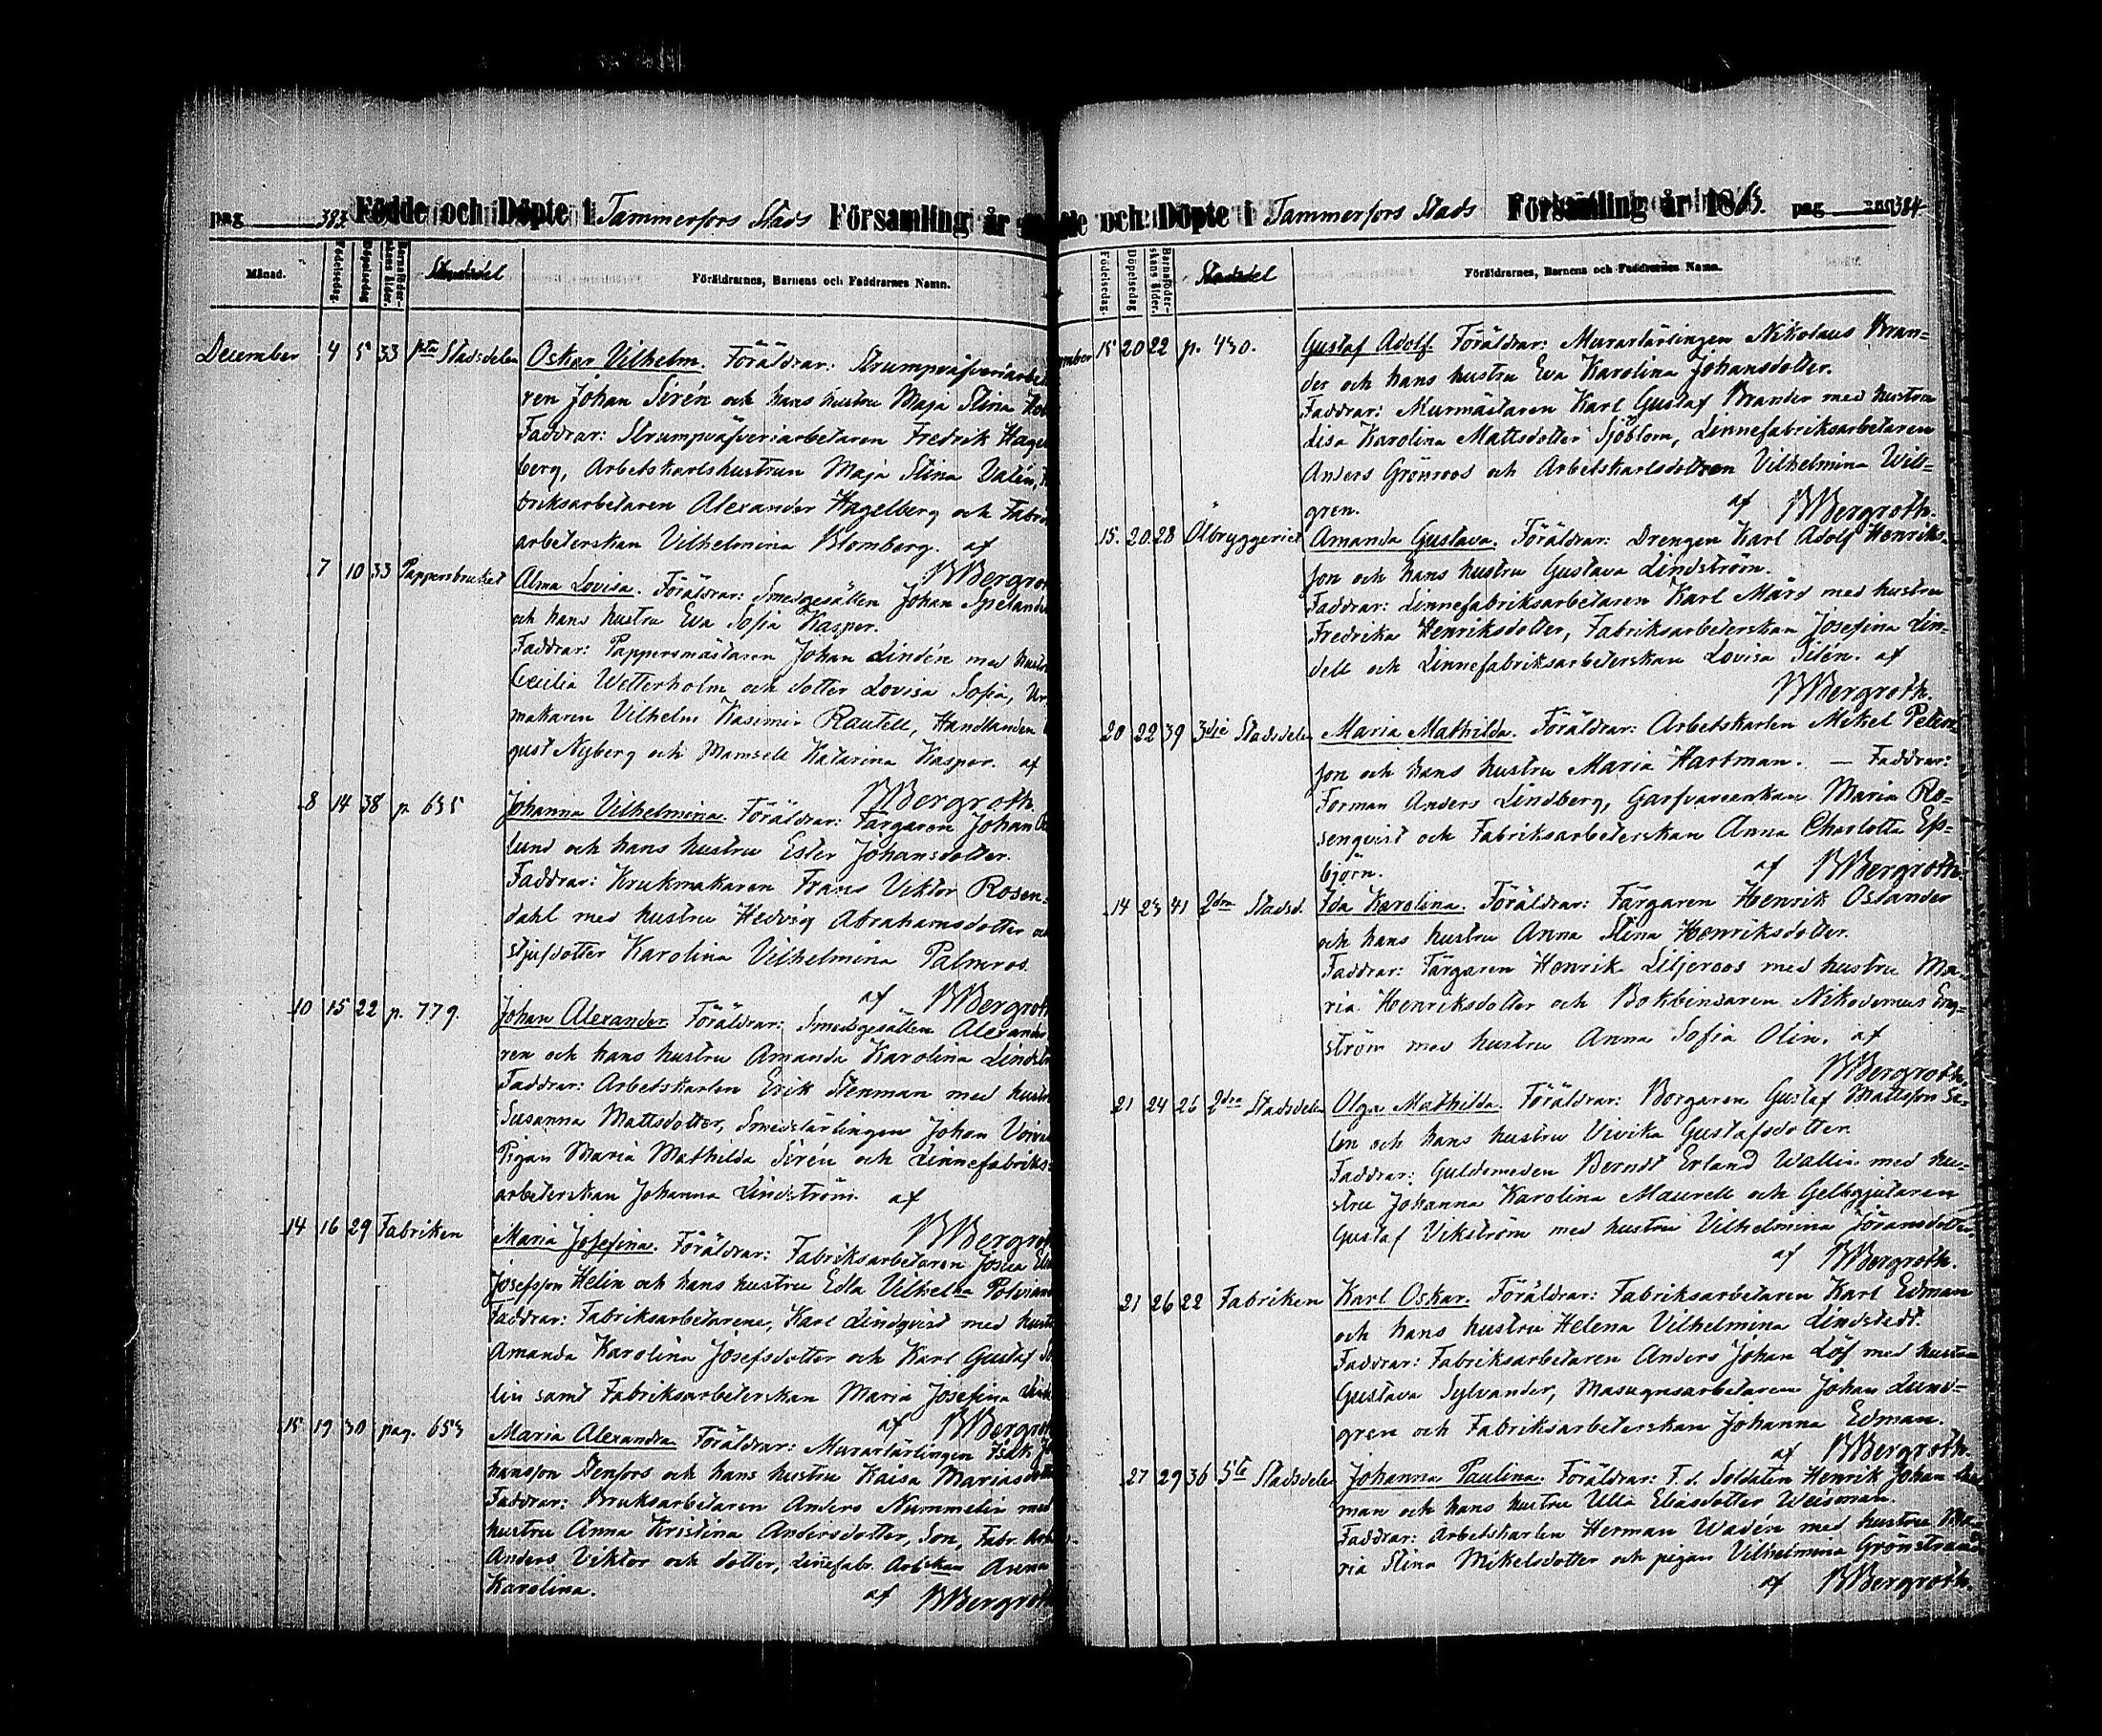 pag 383. Födde och Döpte i Tammerfors Stads Församling år
Månad. Födelsedag. Döpelsedag Barnaföderskans ålder. Stadsdel Föräldrarnes, Barnens och Faddrarnes Namn.
December 4 5 33 Stadsdelen Oskar Vilhelm. Föräldrar: Strumpväfveriarbeta
ren Johan Sirén och hans hustru Maja Stina
Faddrar: Strumpväfveriarbetaren Fredrik Hagel
berg, Arbetskarlshustrun Maja Stina Dalén,
briksarbetaren Alexander Hagelberg och Fabriks
arbeterskan Vilhelmina Blomberg. af
BBergroth
7 10 33 Pappersbruket Alma Lovisa. Föräldrar: Smedgesällen Johan
och hans hustru Eva Sofia Kasper.
Faddrar: Pappersmästaren Johan Lindén med hustru
Cecilia Wetterholm och dotter Lovisa Sofia, Ur
makaren Vilhelm Kasimir Rautell, Handlanden
gust Nyberg och Mamsell Katarina Kasper. af
BBergroth.
8 14 38 p. 635 Johanna Vilhelmina. Föräldrar: Färgaren Johan
lund och hans hustru Ester Johansdotter.
Faddrar: Krukmakaren Frans Viktor Rosen=
dahl med hustru Hedvig Abrahamsdotter och
stjufdotter Karolina Vilhelmina Palmros.
af BBergroth
10 15 22 p. 779. Johan Alexander. Föräldrar: Smedsgesällen Alexander
ren och hans hustru Amanda Karolina Lindström
Faddrar: Arbetskarlen Erik Stenman med hustru
Susanna Mattsdotter, Smedslärlingen Johan
Pigan Maria Mathilda Siren och Linnefabriks=
arbeterskan Johanna Lindström. af
BBergroth
14 16 29 Fabriken Maria Josefina. Föräldrar: Fabriksarbetaren Josua
Josefsson Helin och hans hustru Edla Vilhelma
Faddrar: Fabriksarbetarena, Karl Lindqvist med hustru
Amanda Karolina Josefsdotter och Karl Gustaf
lin samt Fabriksarbeterskan Maria Josefina
af BBergroth
15 19 30 pag. 653 Maria Alexandra. Föräldrar: Murarlärlingen Isak Jo
hansson Stenfors och hans hustru Kaisa Mariasdotter
Faddrar: Bruksarbetaren Anders Nummelin med
hustru Anna Kristina Andersdotter, Son, Fabr. Arb.
Anders Viktor och dotter, Linefabr. Arbskan Anna
Karolina. af BBergroth
och Döpte i Tammerfors Stads Församling år 1863. pag 384.
Födelsedag. Döpelsedag Barnaföderskans ålder. Stadsdel Föräldrarnes, Barnens och Faddrarnes Namn.
15 20 22 p. 430. Gustaf Adolf. Föräldrar: Murarlärlingen Nikolaus Bran=
der och hans hustru Eva Karolina Johansdotter.
Faddrar: Murmästaren Karl Gustaf Brander med hustru
Lisa Karolina Mattsdotter Sjöblom, Linnefabriksarbetaren
Anders Grönroos och Arbetskarlsdottren Vilhelmina Will=
gren. af BBergroth.
15. 20. 28 Ölbryggeriet Amanda Gustava. Föräldrar: Drengen Karl Adolf Henriks=
son och hans hustru Gustava Lindström.
Faddrar: Linnefabriksarbetaren Karl Mård med hustru
Fredrika Henriksdotter, Fabriksarbeterskan Josefina Lin=
dell och Linnefabriksarbeterskan Lovisa Silén. af
BBergroth.
20 22 39 3die Stadsdelen Maria Mathilda. Föräldrar: Arbetskarlen Mikel Peters=
son och hans hustru Maria Hartman. — Faddrar:
Forman Anders Lindberg, Garfvareenkan Maria Ro=
senqvist och Fabriksarbeterskan Anna Charlotta Es=
björn. af BBergroth.
14 23 41 2dra Stadsd. Ida Karolina. Föräldrar: Färgaren Henrik Oslander
och hans hustru Anna Stina Henriksdotter.
Faddrar: Färgaren Henrik Liljeroos med hustru Ma=
ria Henriksdotter och Bokbindaren Nikodemus Eng=
ström med hustru Anna Sofia Olin. af
BBergroth.
21 24 26 2dra Stadsdelen Olga Mathilda. Föräldrar: Borgaren Gustaf Mattsson Sa=
len och hans hustru Vivika Gustafsdotter.
Faddrar: Guldsmeden Berndt Erland Wallin med hu=
stru Johanna Karolina Maurell och Gelbgjutaren
Gustaf Vikström med hustru Vilhelmina Göransdotter.
af BBergroth.
21 26 22 Fabriken Karl Oskar. Föräldrar: Fabriksarbetaren Karl Edman
och hans hustru Helena Vilhelmina Lindstedt.
Faddrar: Fabriksarbetaren Anders Johan Löf med hustru
Gustava Sylvander, Masugnsarbetaren Johan Lund=
gren och Fabriksarbeterskan Johanna Edman.
af BBergroth.
27 29 36 5te Stadsdelen Johanna Paulina. Föräldrar: F. d. Soldaten Henrik Johan
man och hans hustru Ulla Eliasdotter Weisman.
Faddrar: Arbetskarlen Herman Wadén med hustru Ma=
ria Stina Mikelsdotter och pigan Vilhelmina Grönstrand
af BBergroth.